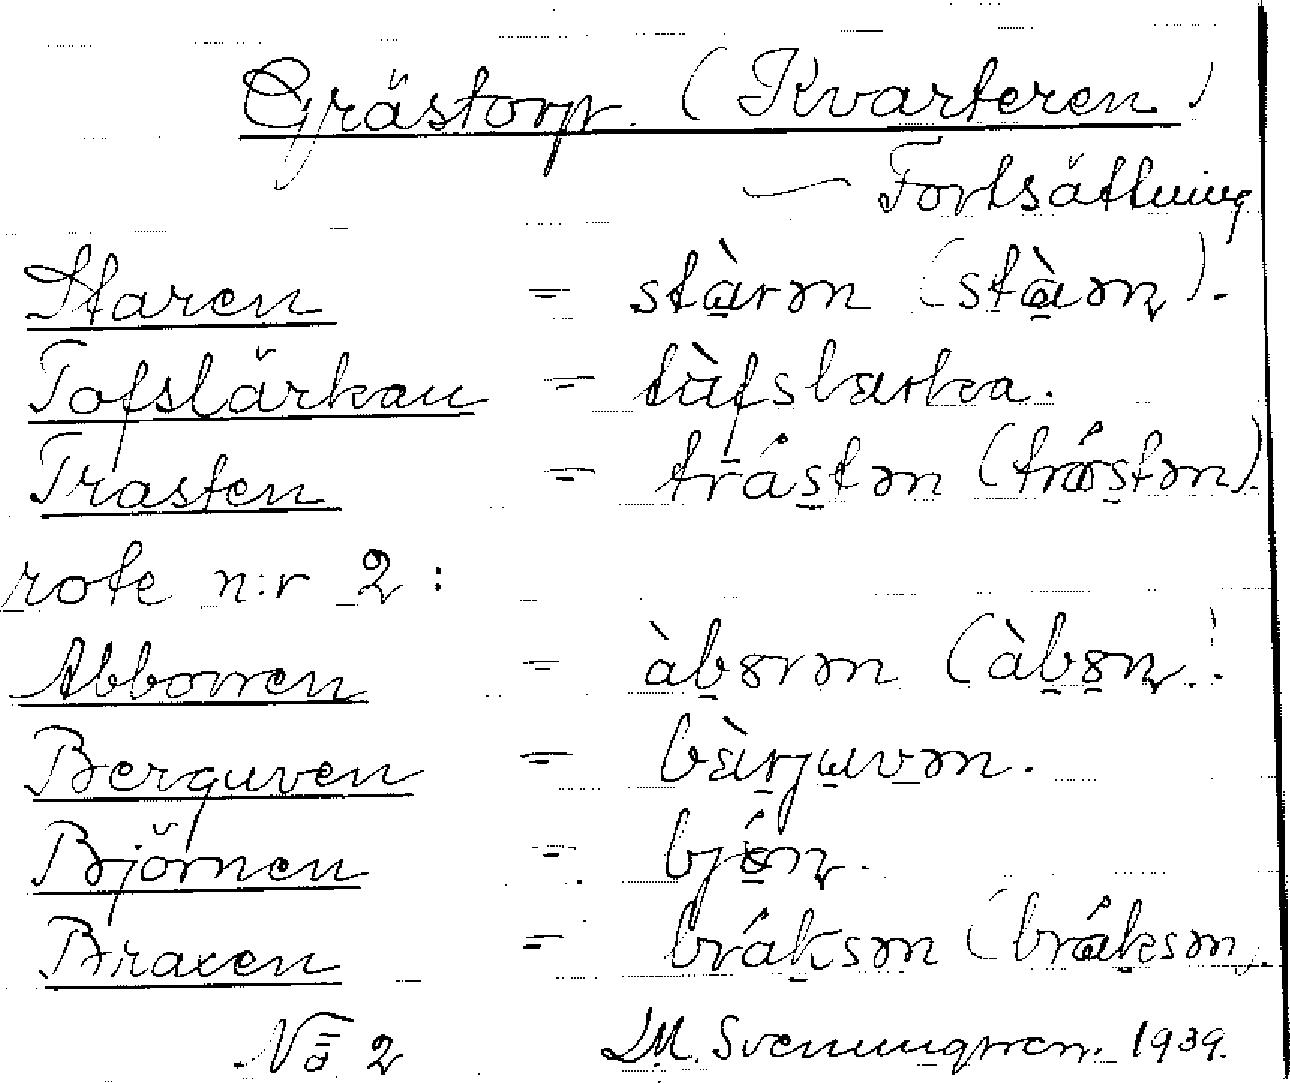 Grästorp. (Kvarteren)
— Fortsättning
Staren = stàrən (stàən).
Tofslärkan = tàfslærka.
Trasten = trástən (trástən).
rote n:r 2 :
Abborren = àbɤrən (àbɤn).
Berguven = bærjuvən.
Björnen = bjɵ́n.
Braxen = bráksən (bráksən).
Nä 2 I.M. Svenungsson. 1939.